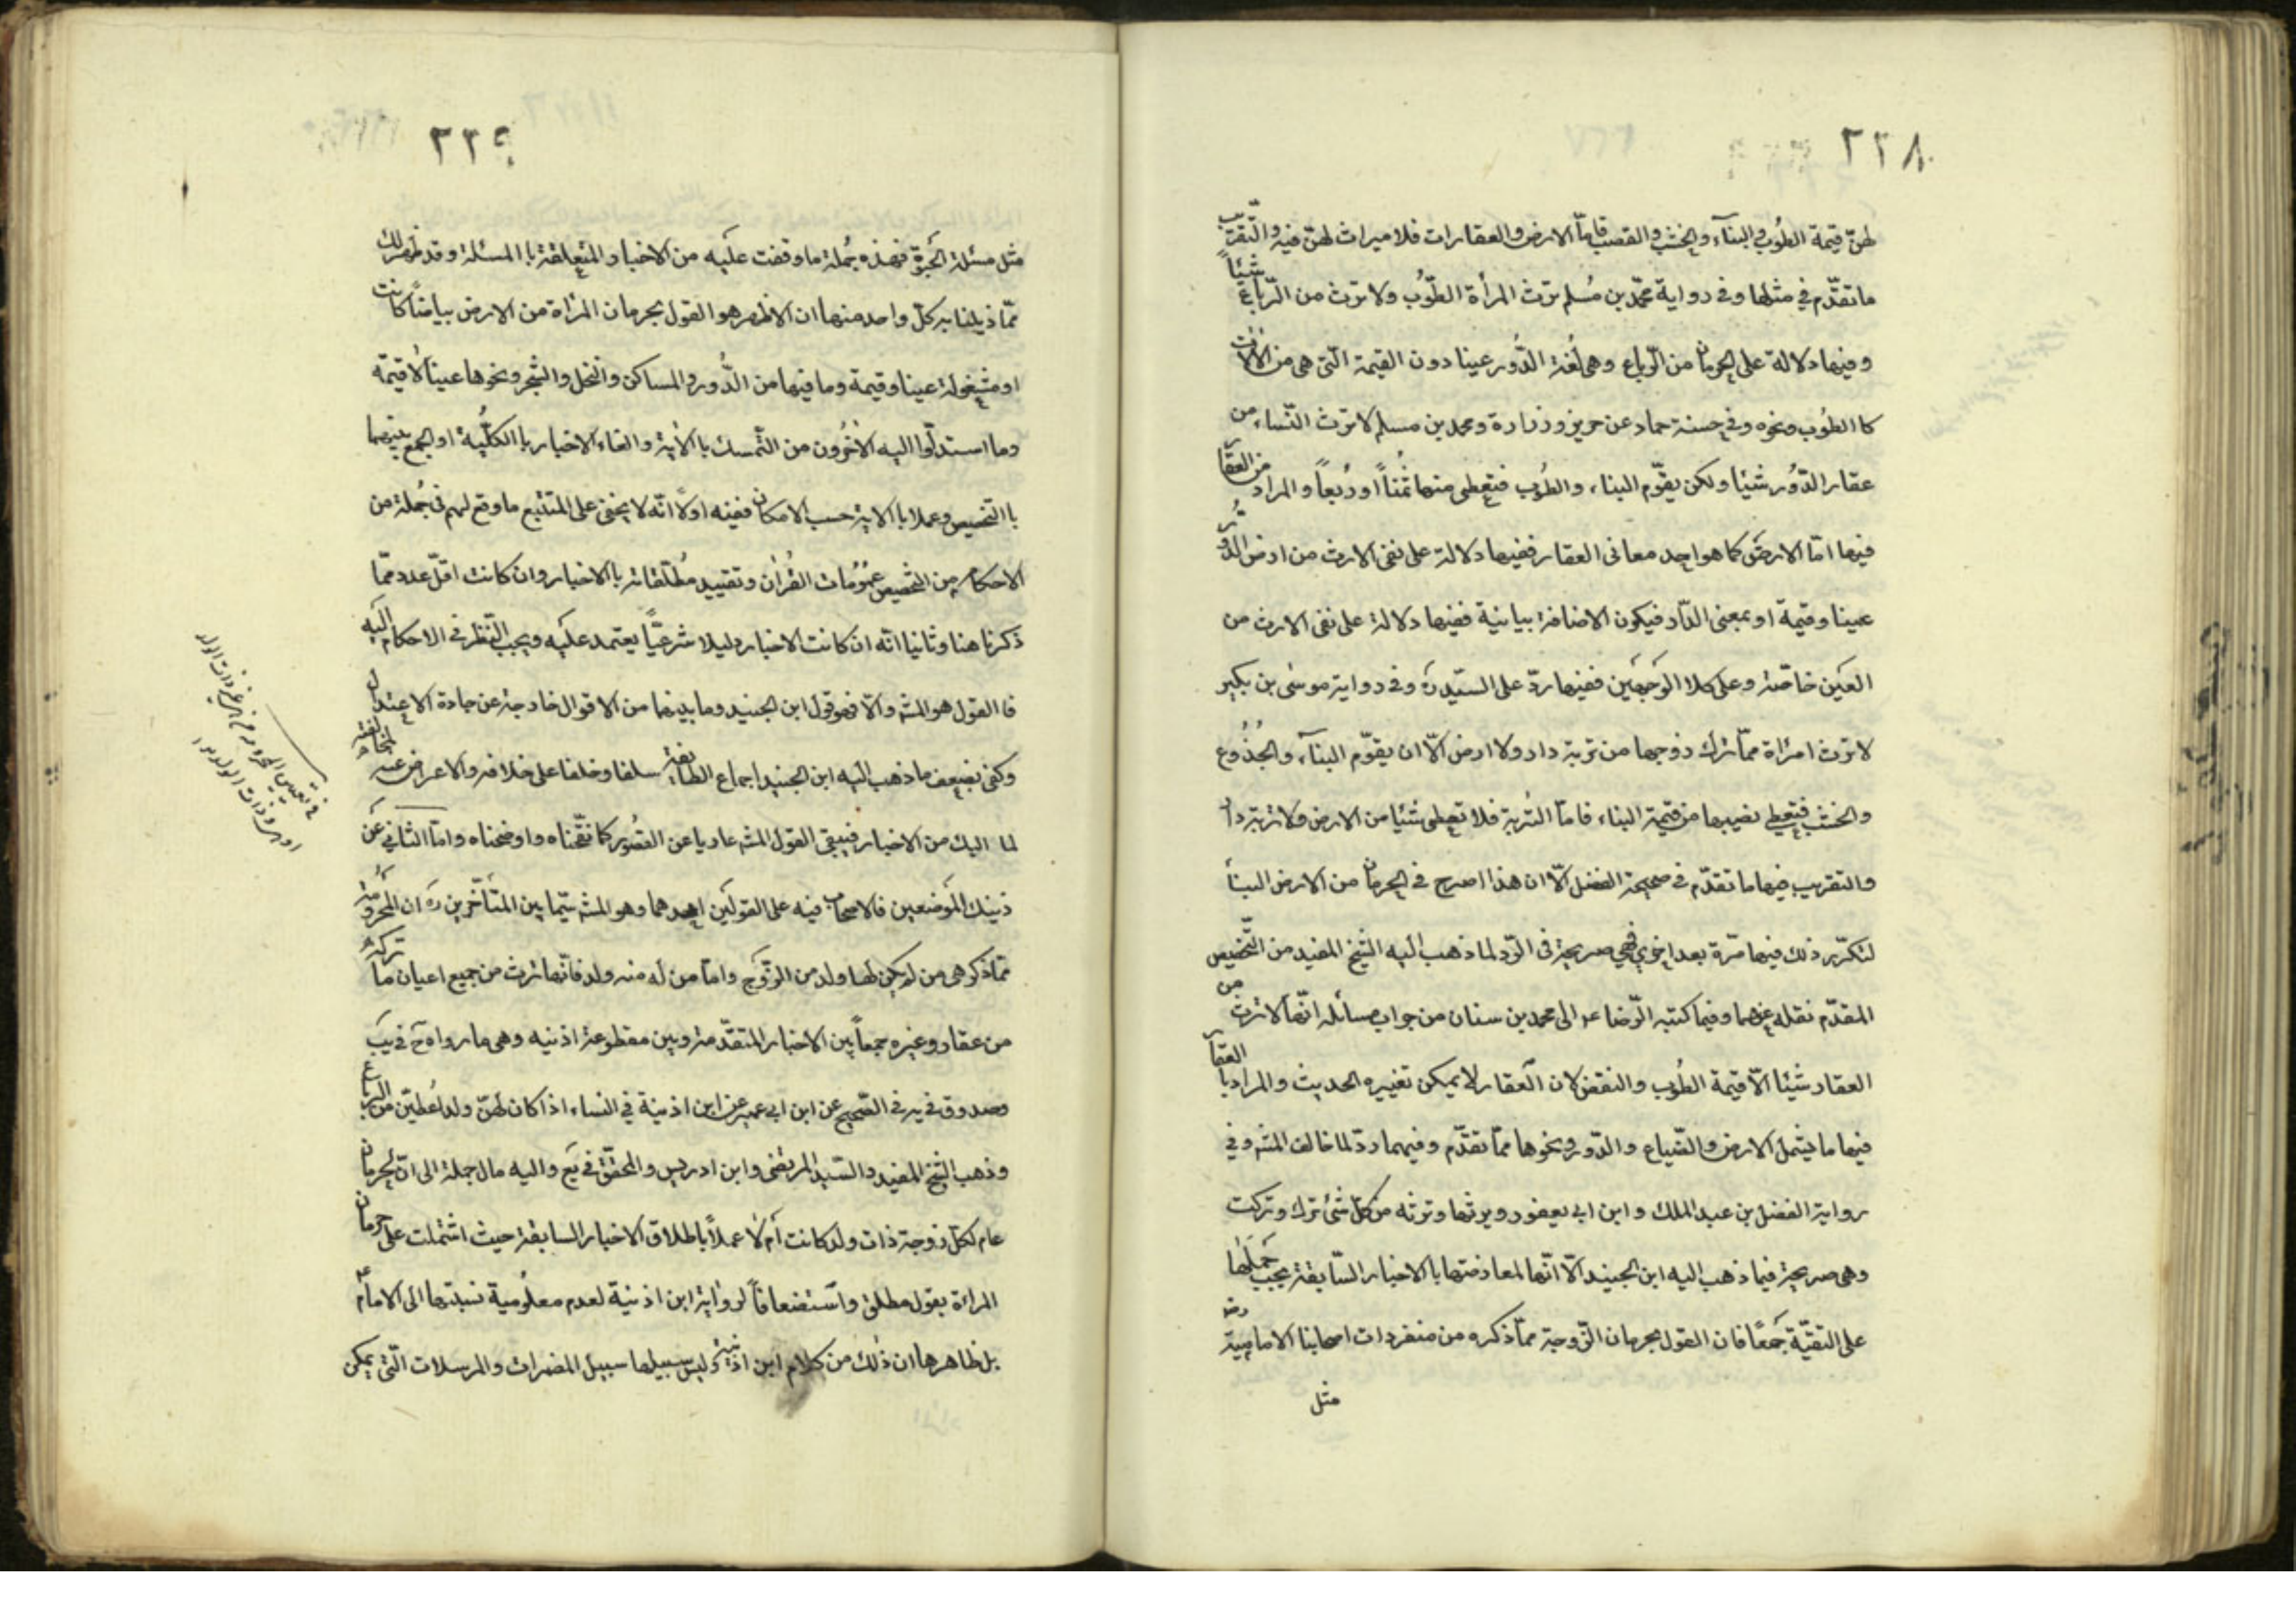 ٢٢٨
لهنّ قيمة الطُوب والبنآء والخشب والقصب فامّا الارض والعقارات فلا ميراث لهنّ فيه والتّقرّيب
ما تقدّم في مثلها وفي رواية محمّد بن مُسلم ترث المرأة الطّوُب ولا ترث من الرّباع شيئاً
وفيها دلالة على الحرمان من الرّباع وهى لُغة الدُّور عينا دون القيمة الّتى هى من الآلات
كا الطُوب ونحوه وفي حسنة حماد عن حريز وزرارة ومحمد بن مسلم لا ترث النّساء من
عقار الدّوُر شيئا ولكن يقوّم البناء والطُوب فتعطى منها ثُمناً او رُبعاً والمراد من العقا
فيها امّا الارض كما هو احد معانى العقار ففيها دلالة على نفى الارث من ارض الدُّور
عينا وقيمة او بمعنى الدّار فيكون الاضافة بيانية ففيها دلالة على نفى الارث من
العين خاصّة وعلى كلا الوَجهَين ففيها ردّ على السيّد ره وفي رواية موسى بن بكير
لا ترث امرأة ممّا ترك زوجها من تربة دار ولا ارض الّا ان يقوّم البنآء والجُذُوع
والخشب فتعطى نصيبها من قيمة البناء فامّا التُربة فلا تعطى شيئا من الارض ولا تربة دار
والتقريب فيها ما تقدّم في صحيحة الفضل الّا ان هذا اصرح في الحرمان من الارض البيضاء
لتكرّر ذلك فيها مرّة بعد اخرى فهى صريحة في الرّد لما ذهب اليه الشّيخ المفيد من التّخصيص
المقدّم نقله عنهما وفيما كتبه الرّضا ع الى محمد بن سنان من جواب مسائله انّها لا ترث من
العقار شيئا الّا قيمة الطُوب والنقض لان العقار لا يمكن تغييره الحديث والمراد با العقآ
فيها ما يشمل الارض والضّياع والدّور ونحوها ممّا تقدّم وفيهما ردّ لما خالف المشه وفي
رواية الفضل بن عبد الملك وابن ابى يعفور ويرثها وترثه من كلّ شئ ترك وتركت
وهى صريحة فيما ذهب اليه ابن الجنيد الّا انّها لمعارضتها با الاخبار السّابقة يجب حَملَها
على التقيّة جَمعًا فان القول بحرمان الزّوجة ممّا ذكره من متفردات اصحابنا الاماميّة رض
مثل
٢٢٩
مثل مسئلة الحَبوَة فهذه جُملة ما وقفت عليه من الاخبار المتعلقة با المسئلة وقد ظهر لك
ممّا ذيلنا به كلّ واحد منها ان الاظهر هو القول بحرمان المرأة من الارض بياضًا كانت
او مشغولة عينا وقيمة وما فيها من الدُّور والمساكن والنخل والشجر ونحوها عينًا لا قيمة
وما استدلّوا اليه الآخرُون من التّمسك با الآية والغاء الاخبار با الكلّيّة او الجمع بينهما
با التخصيص وعملا با الاية حسب الامكان ففيه اولًا انّه لا يخفى على المتتبع ما وقع لهم في جُملة من
الاحكام من التخصيص عمُوُمات القُرأن وتقييد مُطلقاته با الاخبار وان كانت اقلّ عدد ممّا
ذكرنا هنا وثانيا انّه ان كانت الاخبار دليلا شرعيًّا يعتمد عليه ويجب النّظر في الاحكام اليه
فا القول هو المشه والّا فهو قول ابن الجنيد وما بينهما من الاقوال خارجة عن جادة الاعتدال
وكفى بضعف ما ذهب اليه ابن الجنيد اجماع الطايفة سلفا وخلفا على خلافه والاعراض عنه لمخالفته
لما اليك من الاخبار فيبقى القول المشه عاريا عن القصُور كما نقّحناه واوضحناه وامّا الثانى عن
ذينك المَوضعين فالاصحاب فيه على القولَين احدهما وهو المشه سيّما بين المتأخّرين ره ان المحرُومة
ممّا ذكر هى من لم يكن لها ولد من الزّوج وامّا من له منه ولد فانّها ترث من جميع اعيان ما تركه
من عقار وغيره جمعاً بين الاخبار المتقدّمة وبين مقطوعة اذنيه وهى ما رواه خ في يب
وصدوق في يه في الصّحيح عن ابن ابى عمير عن ابن اذينة في النساء اذا كان لهنّ ولد اُعطيَن من الرباع
وذهب الشّيخ المفيد والسّيد المرتضى وابن ادريس والمحقّق في يع واليه مال جملة الى انّ الحرمان
عام لكلّ زوجة ذات ولد كانت اَم لا عملاً باطلاق الاخبار السابقة حيث اشتملت على حرمان
المراءة بقول مطلق واستضعافاً لرواية ابن اذنية لعدم معلُومية نسبتها الى الامام ع
بل ظاهرها ان ذلك من كلام ابن اذنية وليس سبيلها سبيل المضمرات والمرسلات الّتى يمكن